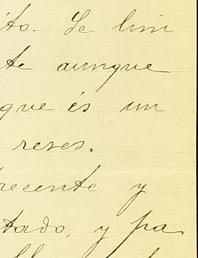 ito. Se lim
te aunque
que és un
reses.
recente y
tado, y pa